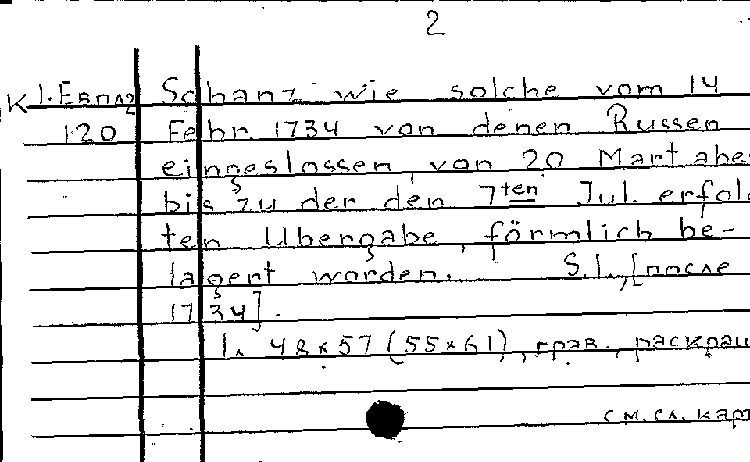 2
К 1.Евпл2 Schanz wie solche vom 14
120 Febr. 1734 von denen Russen
eingeslossen, von 20 Mart abe
bis zu der den 7ten Jul. erfol
ten Ubergabe, förmlich be-
lagert worden. S.l., [после
1734].
1 л. 48x57 (55x61), грав., раскраш
см. сл. карт